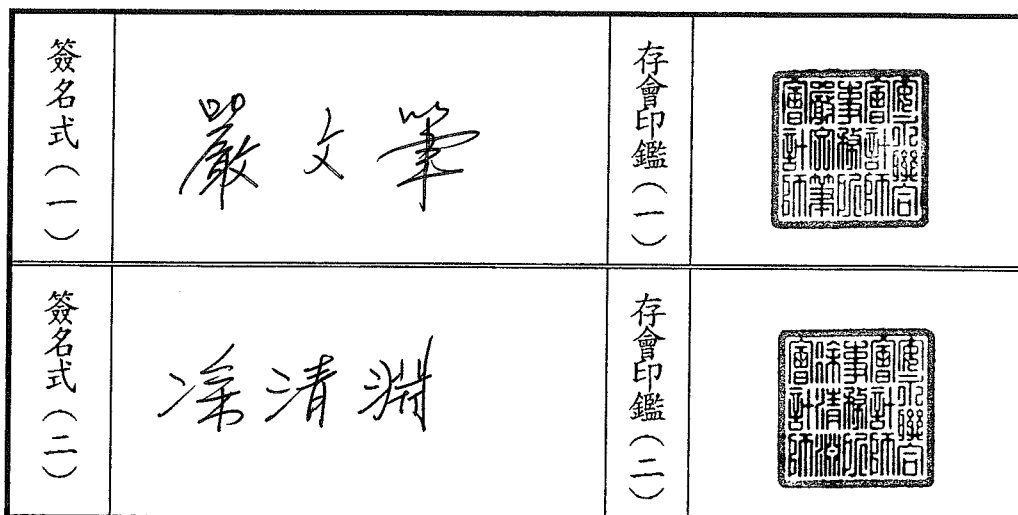 簽名式(一)
嚴文筆
存會印鑑(一)
安永聯合
會計師
事務所
嚴文筆
會計師
簽名式(二)
涂清淵
存會印鑑(二)
安永聯合
會計師
事務所
涂清淵
會計師